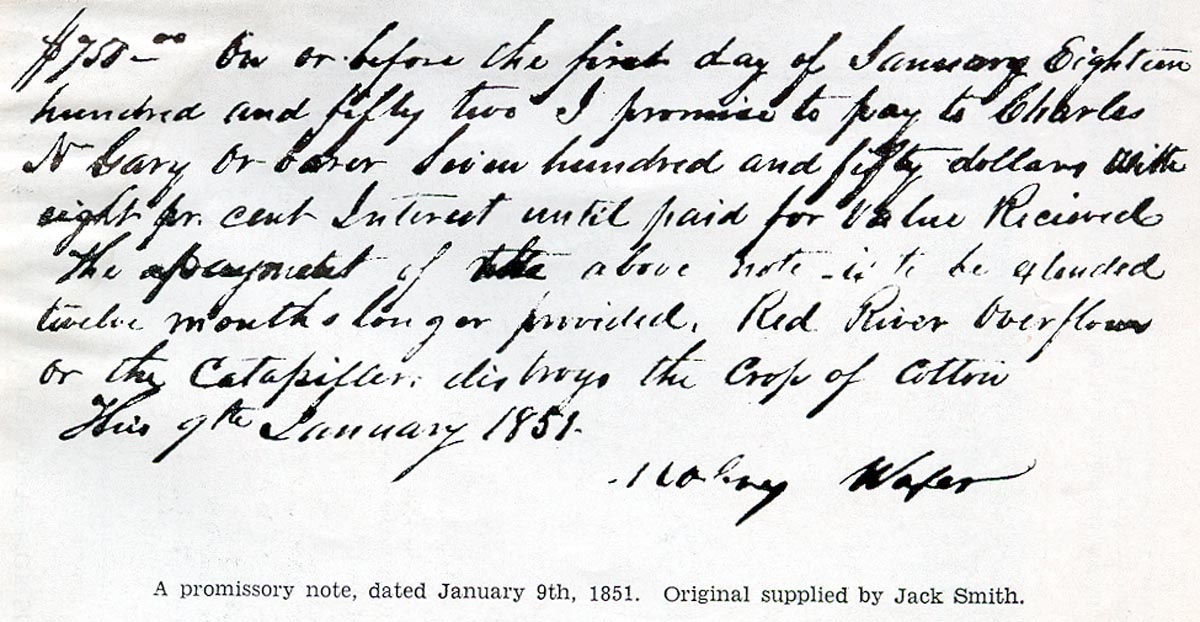 $750.00 On or before the first day of January Eighteen
hundred and fifty two I promise to pay to Charles
N Gary Or barer Seven hundred and fifty dollars with
eight pr. cent Interest until paid for Value Recieved
The payment of the above note is to be extended
twelve months longer provided, Red River Overflows
or the Catapiller distroys the Crop of Cotton
This 9th January 1851.
Wafer
A promissory note, dated January 9th, 1851. Original supplied by Jack Smith.